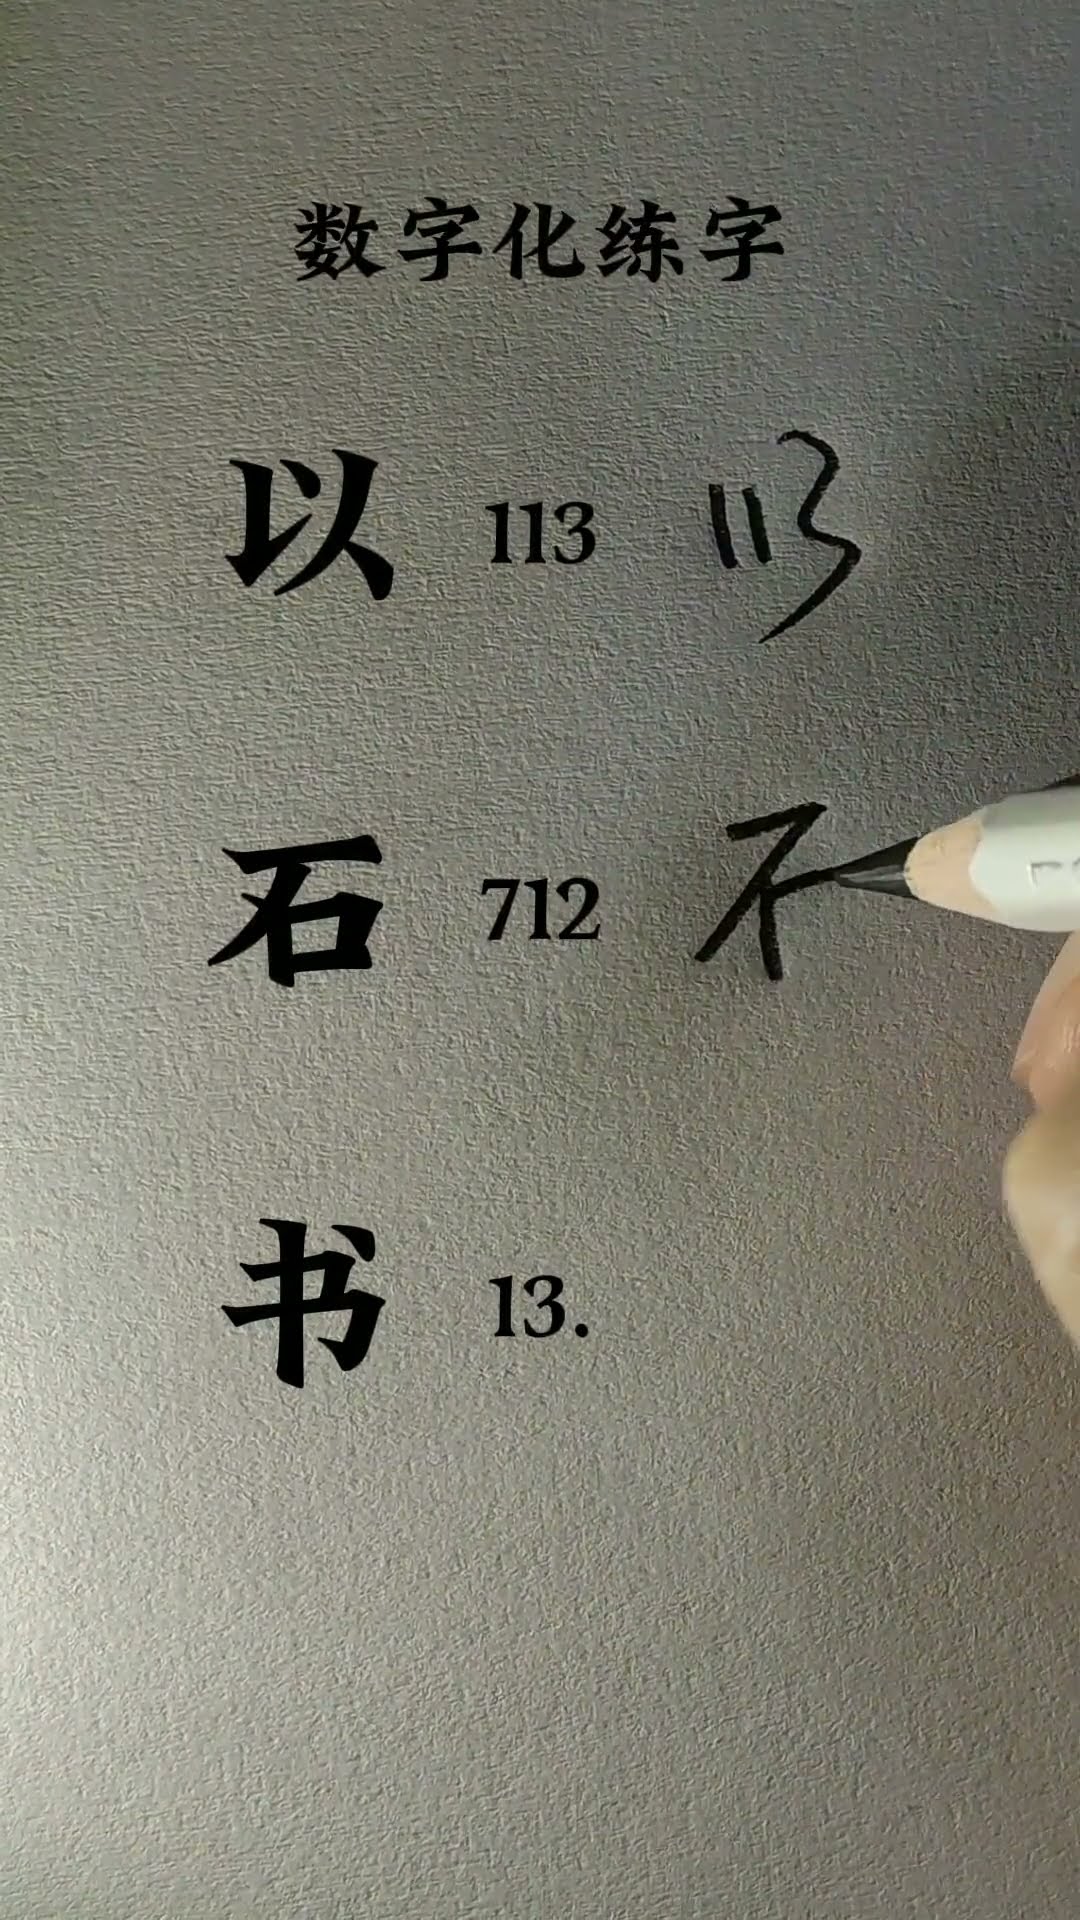 数字化练字
以 113 113
石 712
书 13.